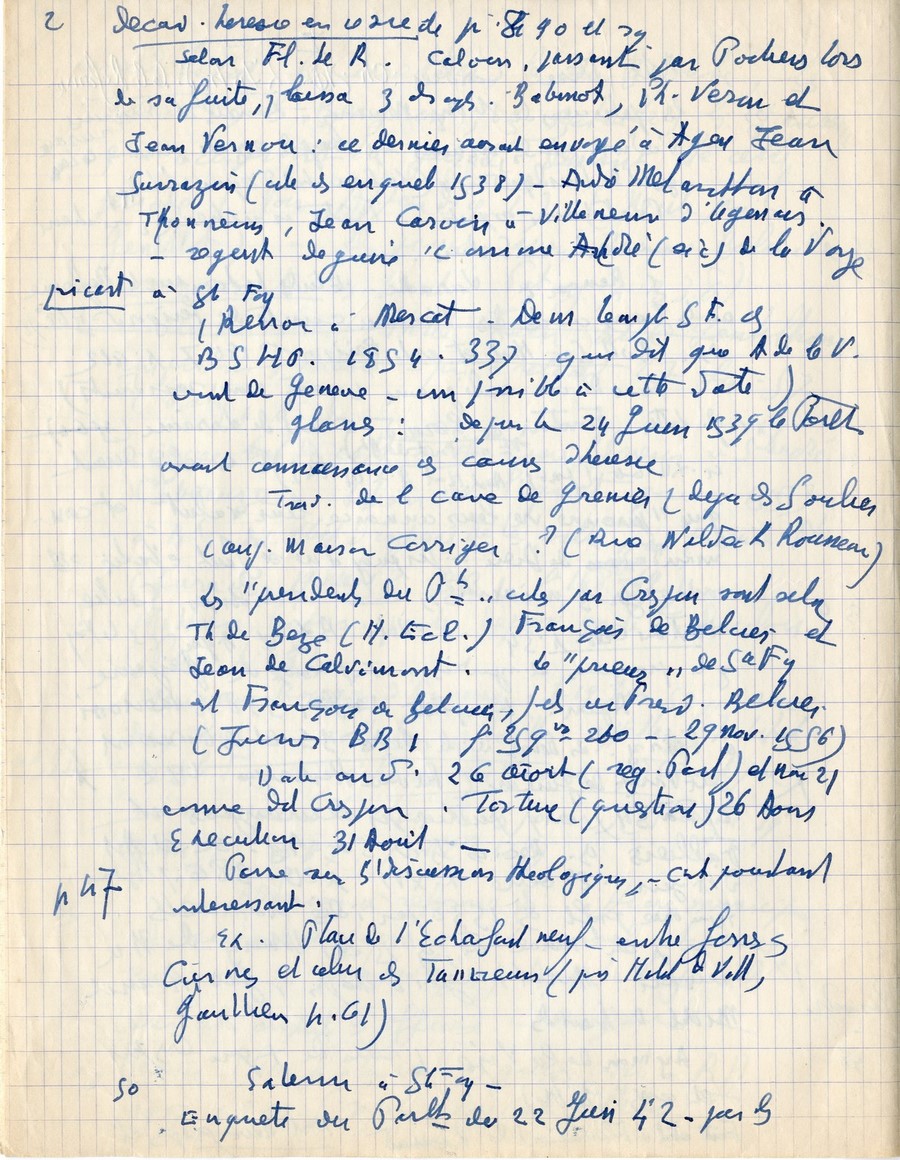 2 Decad. heresie en 1 de p. 90 et sq
Selon Fl. de R. Calvin, passant par Poitiers lors
de sa fuite, y laissa 3 discipl. Babinot, Ph. Veron et
Jean Vernou : ce dernier aurait envoyé à Agen Jean
Sarrazin (cité ds enquete 1538) – André Melanchton à
Thonneins, Jean Carvin à Villeneuve d'Agenais.
– regent deguisé comme André (sic) de la Voye
picart à Ste Foy
, Renon à Mercat – Dans ds
BSHP. 1854. 337 qui dit que A de la V.
vint de Geneve – impossible à cette date)
glanes : depuis le 24 Juin 1539 le Parlt
avait connaissance de cours d'heresie
Trad. de la cave de Grenier (deja ds Soulier
conf. Maison Corriger ? (Rue Waldeck Rousseau)
Les "presidents du P^t" cités par Crespin sont selon
Th de Beze (H. Eccl.) François de Belcier et
Jean de Calvimont. Le "prieur" de Ste Foy
est François de Belcier, fils du Presd. Belcier
(Jurade BB 1 f° 259 v° – 260 – 29 nov. 1556)
Date au P. 26 Août (reg. Parl) et non 21
comme dit Crespin. Torture (question) 26 Aout
Execution 31 Août –
p 47 Passe sur discussions theologiques, – est pourtant
interessant.
Ex. Place de l'Echafaud neuf – entre fosses
Carmes et celui des Tanneurs (près Hotel de Ville,
Gaullieur p. 61)
50 Salerm à Ste Foy –
Enquete du Parlt du 22 Juin 42 – par ls